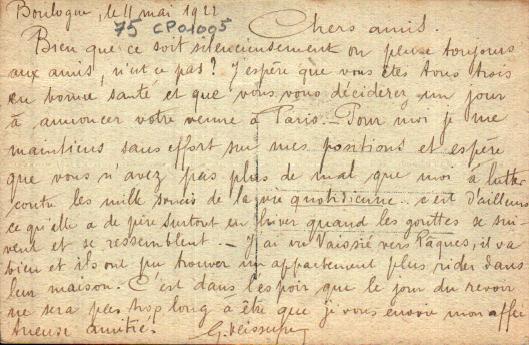 Boulogne, le 11 mai 1922
75 CPA1005
Chers amis.
Bien que ce soit silencieusement on pense toujours
aux amis, n'est ce pas? J'espère que vous êtes tous trois
en bonne santé et que vous vous déciderez un jour
à annoncer votre venue à Paris. – Pour moi je me
maintiens sans effort sur mes positions et espère
que vous n'avez pas plus de mal que moi à lutter
contre les mille soucis de la vie quotidienne. c'est d'ailleurs
ce qu'elle a de pire surtout en hiver quand les gouttes se sui-
vent et se ressemblent. – J'ai vu Vaissié vers Pâques, il va
bien et ils ont pu trouver un appartement plus dans
leur maison. C'est dans l'espoir que le jour du revoir
ne sera pas trop long à être que je vous envoie mon affec
tueuse amitié.